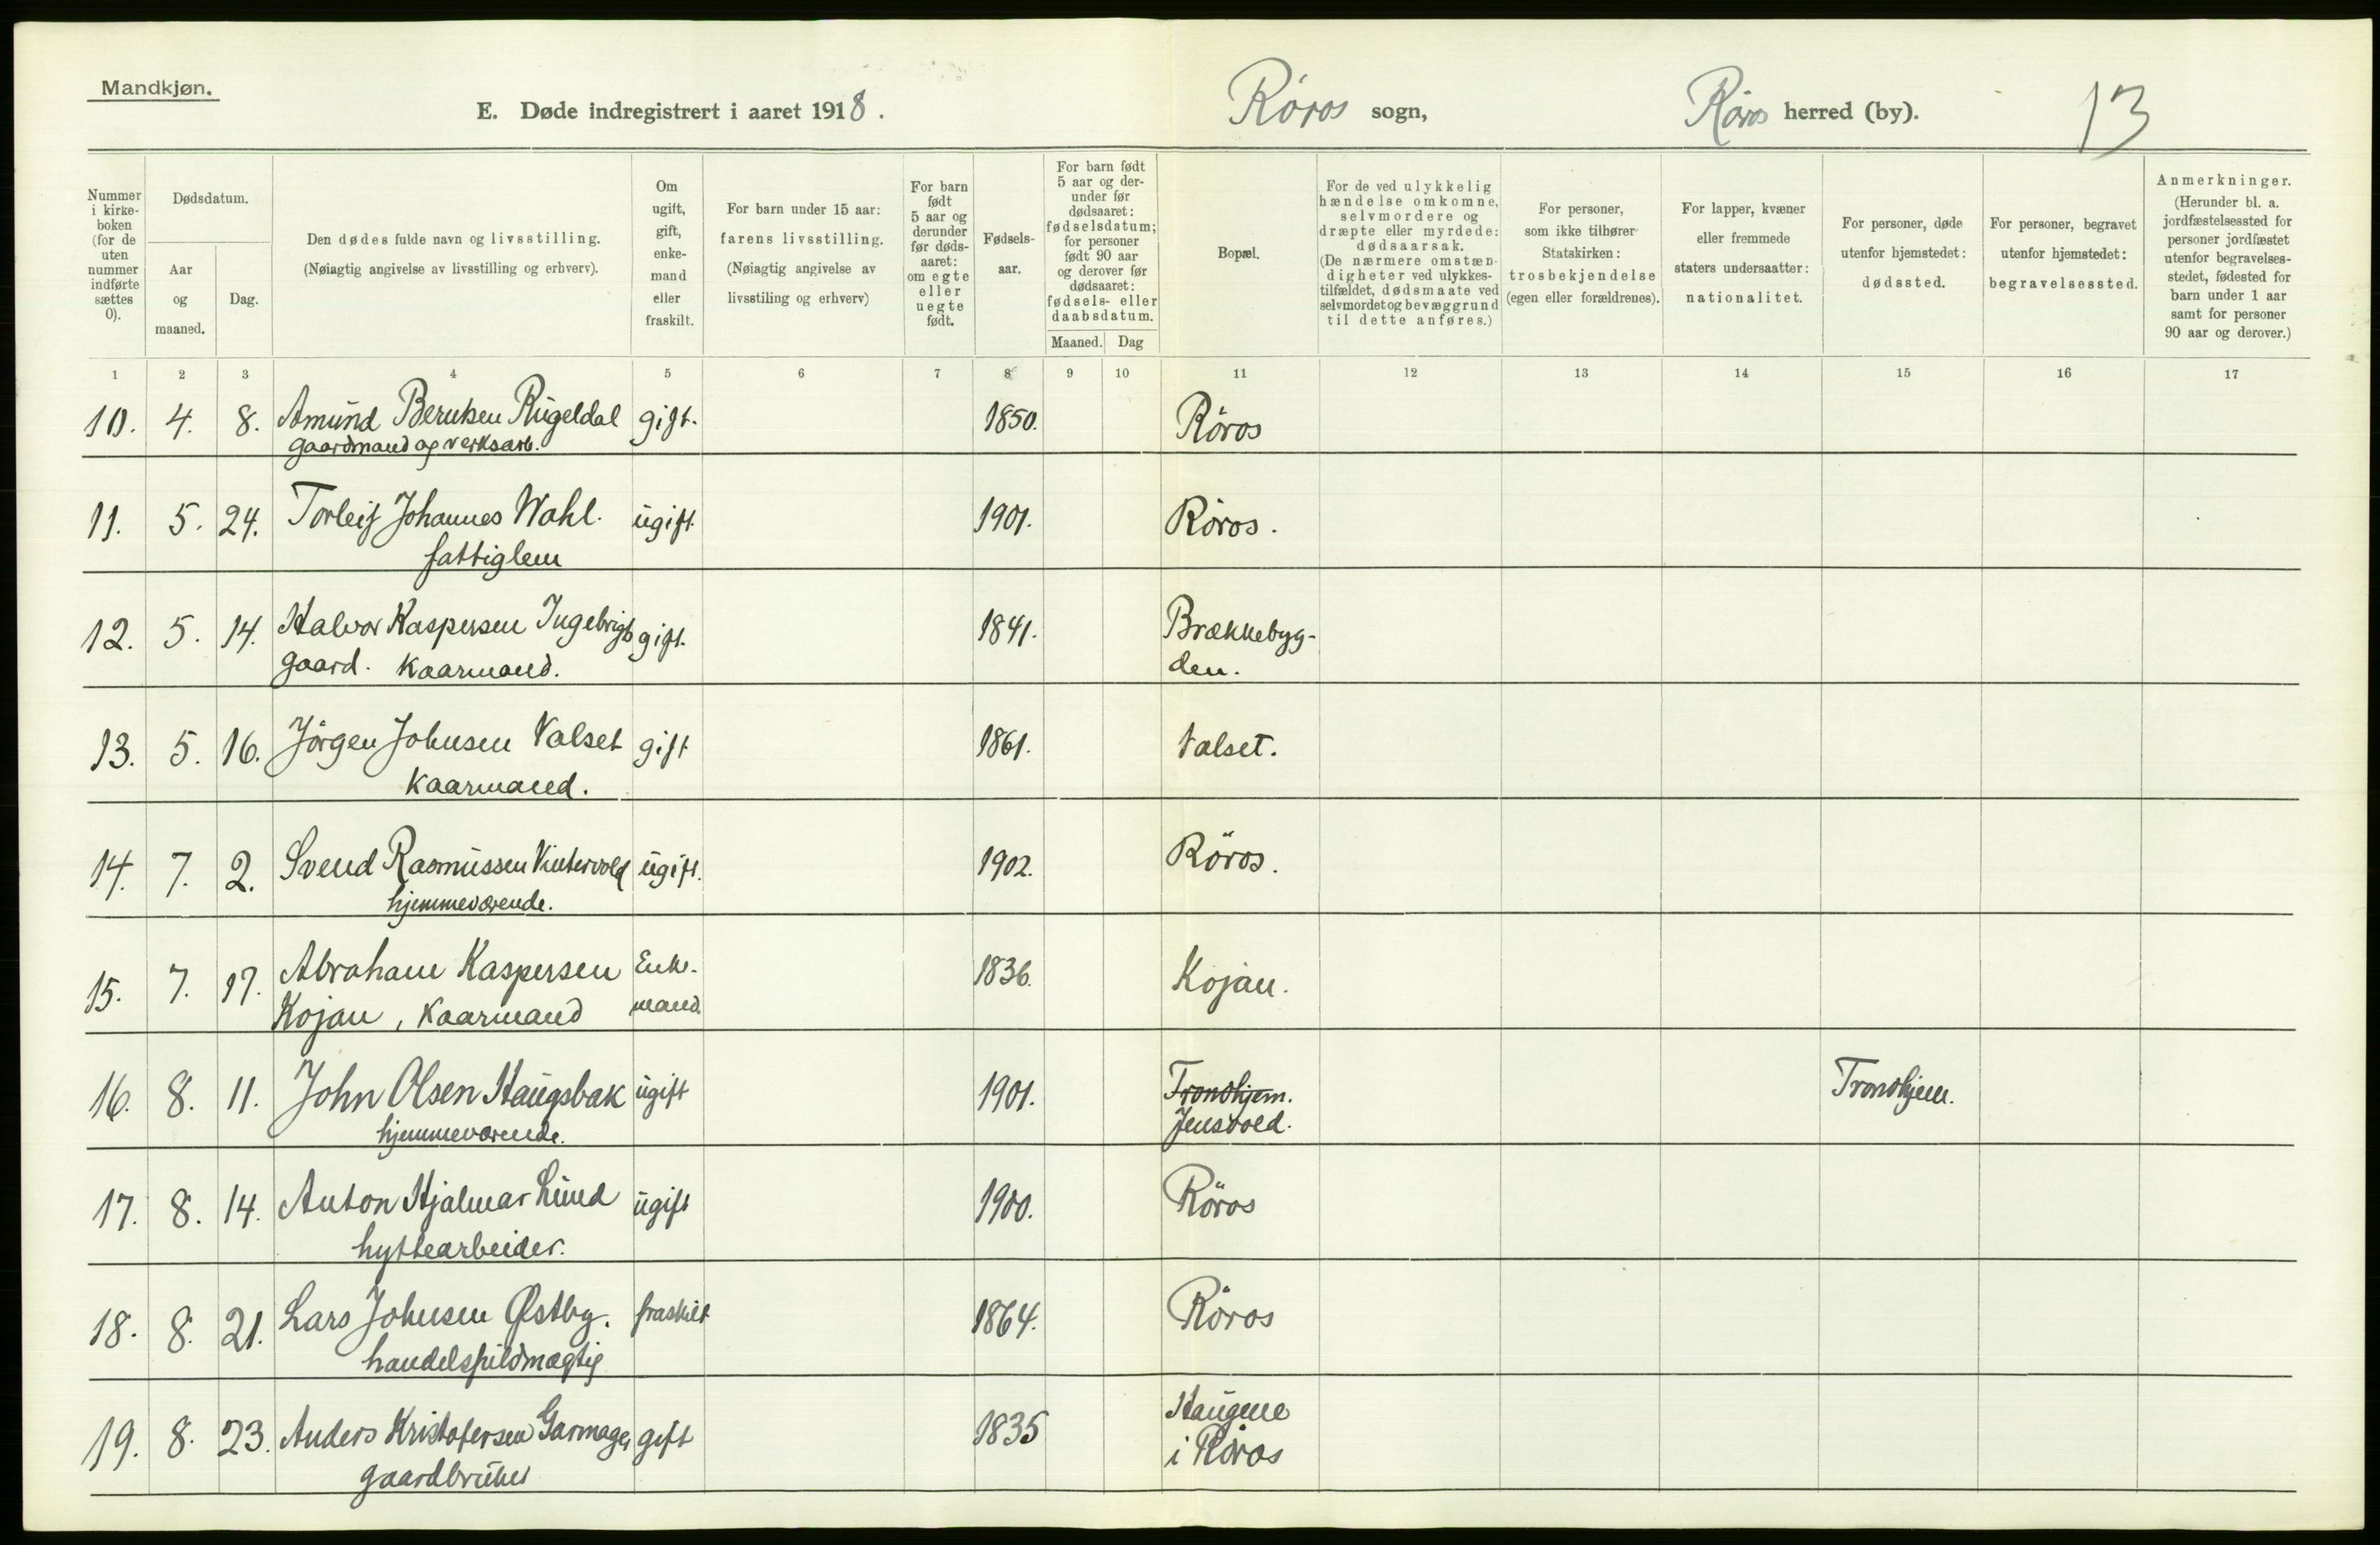 Mandkjøn.
E. Døde indregistrert i aaret 1918.
Röros sogn,
Röros herred (by).
13
Nummer i kirke- boken (for de uten nummer indførte sættes 0).
Dødsdatum.
Aar og maaned.
Dag.
Den dødes fulde navn og livsstilling.
(Nøiagtig angivelse av livsstilling og erhverv).
Om ugift, gift, enke- mand eller fraskilt.
For barn under 15 aar:
farens livsstilling.
(Nøiagtig angivelse av
livsstiling og erhverv)
For barn født 5 aar og derunder før døds- aaret: om egte eller uegte født.
Fødsels- aar.
For barn født 5 aar og der- under før dødsaaret: fødselsdatum; for personer født 90 aar og derover før dødsaaret: fødsels- eller daabsdatum.
Maaned. Dag
Bopæl.
For de ved ulykkelig hændelse omkomne, selvmordere og dræpte eller myrdede: dødsaarsak. (De nærmere omstæn- digheter ved ulykkes- tilfældet, dødsmaate ved selvmordet og bevæggrund til dette anføres.)
For personer, som ikke tilhører Statskirken: trosbekjendelse (egen eller forældrenes).
For lapper, kvæner eller fremmede staters undersaatter: nationalitet.
For personer, døde utenfor hjemstedet: dødssted.
For personer, begravet utenfor hjemstedet: begravelsessted.
Anmerkninger. (Herunder bl. a. jordfæstelsessted for personer jordfæstet utenfor begravelses- stedet, fødested for barn under 1 aar samt for personer 90 aar og derover.)
1 2 3 4 5 6 7 8 9 10 11 12 13 14 15 16 17
10. 4. 8. Amund Rugeldal gift. 1850. Röros
gaardmand og verksarb.
11. 5. 24. Torleif Johannes Wahl. ugift 1901. Röros.
fattiglem
12. 5. 14. Halvor Kaspersen Ingebrigts gift. 1841. Brækkebyg-
gaard. Kaarmand. den.
13. 5. 16. Jörgen Johnsen Valset gift 1861. Valset.
kaarmand.
14. 7. 2. Svend Rasmussen Vintervold ugift. 1902. Röros.
hjemmeværende.
15. 7. 17. Abraham Kaspersen Enke- 1836. Kojan.
Kojan, Kaarmand mand.
16. 8. 11. John Olsen Haugsbak ugift 1901. Trondhjem. Trondhjem.
hjemmeværende. Jensvold.
17. 8. 14. Anton Hjalmar Lund ugift 1900. Röros
hyttearbeider.
18. 8. 21. Lars Johnsen Østby. fraskilt 1864. Röros
handelsfuldmægtig
19. 8. 23. Anders Kristofersen gift 1835 Haugene
gaardbruker i Röros